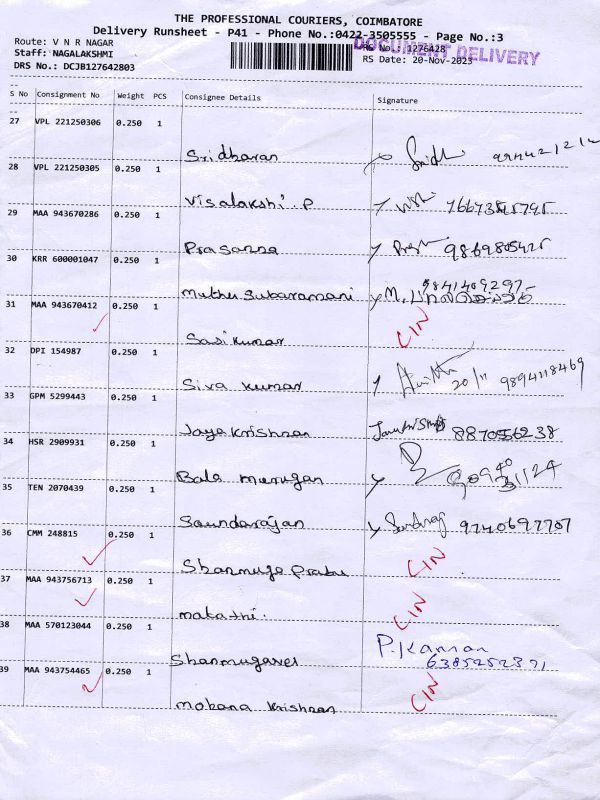 THE PROFESSIONAL COURIERS, COIMBATORE
Delivery Runsheet - P41 - Phone No.:0422-3505555 - Page No.:3
Route: V N R NAGAR
DRS No.: 1276428
DOCUMENT DELIVERY
Staff: NAGALAKSHMI
RS Date: 20-Nov-2023
DRS No.: DCJB127642803
S No Consignment No Weight PCS Consignee Details Signature
27 VPL 221250306 0.250 1
Sridharan
28 VPL 221250305 0.250 1
Visalakshi. P
29 MAA 943670286 0.250 1
Prasanna
30 KRR 600001047 0.250 1
9841409297
Muthu Subaramani M.
31 MAA 943670412 0.250 1
Sasikumar CIN
32 DPI 154987 0.250 1
Siva kumar 20/11 9894118469
33 GPM 5299443 0.250 1
Jaya Krishnan
34 HSR 2909931 0.250 1
Bala murugan
35 TEN 2070439 0.250 1
Saundarajan 9740697707
36 CMM 248815 0.250 1
Shanmuga Prabu CIN
37 MAA 943756713 0.250 1
makathi. CIN
38 MAA 570123044 0.250 1
P. Kannan
Shanmugavel 6385252371
39 MAA 943754465 0.250 1
mohana Krishnan CIN